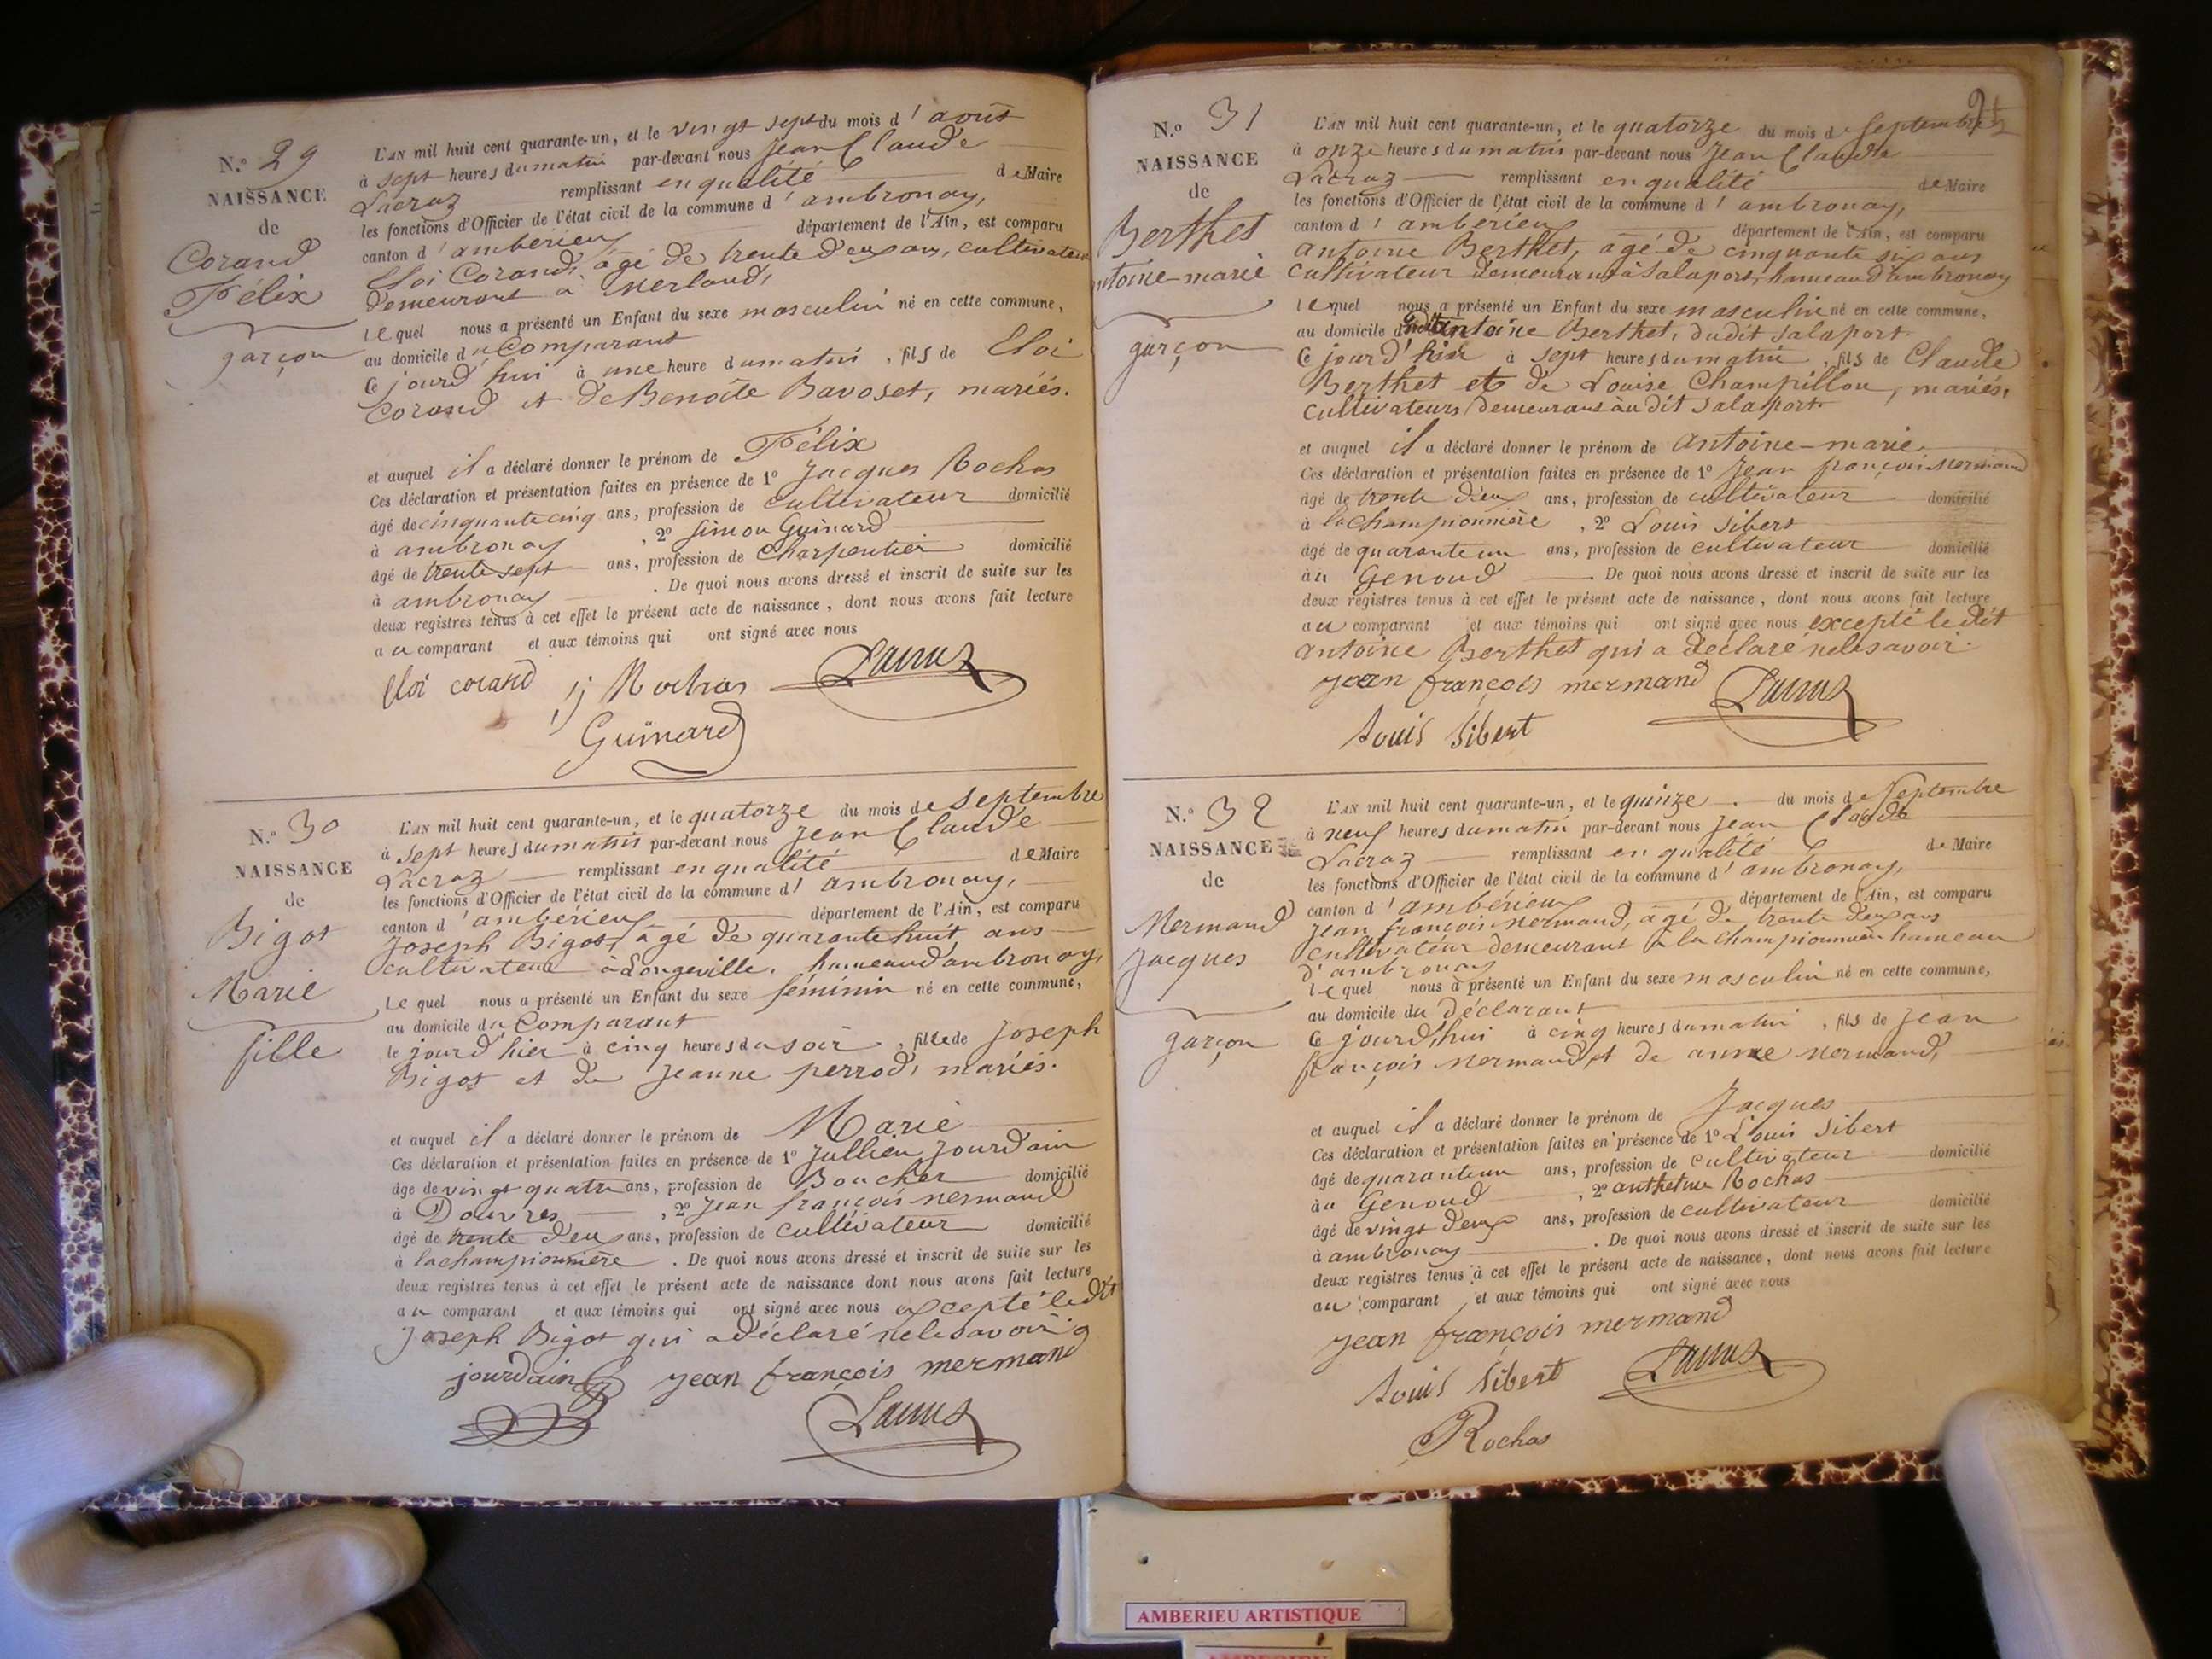 N.º 29
NAISSANCE
de
Corand
Félix
garçon
L'AN mil huit cent quarante-un, et le vingt sept du mois d'août
à sept heures du matin par-devant nous Jean Claude
Lacroz remplissant en qualité de Maire
les fonctions d'Officier de l'état civil de la commune d'ambronay,
canton d'ambérieu département de l'Ain, est comparu
Eloi Corand, âgé de trente deux ans, cultivateur
demeurant à Merland,
lequel nous a présenté un Enfant du sexe masculin né en cette commune,
au domicile du Comparant
Ce jourd'hui à une heure du matin, fils de Eloi
Corand et de Benoîte Bavoset, mariés.
et auquel il a déclaré donner le prénom de Félix
Ces déclaration et présentation faites en présence de 1º Jacques Rochas
âgé de cinquante cinq ans, profession de cultivateur domicilié
à ambronay, 2º Simon Guinard
âgé de trente sept ans, profession de Charpentier domicilié
à ambronay. De quoi nous avons dressé et inscrit de suite sur les
deux registres tenus à cet effet le présent acte de naissance, dont nous avons fait lecture
au comparant et aux témoins qui ont signé avec nous
Eloi corand j Rochas Lacroz
Guinard
N.º 30
NAISSANCE
de
Bigot
Marie
fille
L'AN mil huit cent quarante-un, et le quatorze du mois de septembre
à sept heures du matin par-devant nous Jean Claude
Lacroz remplissant en qualité de Maire
les fonctions d'Officier de l'état civil de la commune d'ambronay,
canton d'ambérieu département de l'Ain, est comparu
Joseph Bigot, âgé de quarante huit ans
cultivateur à Longeville, hameau d'ambronay,
Lequel nous a présenté un Enfant du sexe féminin né en cette commune,
au domicile du Comparant
le jour d'hier à cinq heures du soir, fille de Joseph
Bigot et de Jeanne perrod, mariés.
et auquel il a déclaré donner le prénom de Marie
Ces déclaration et présentation faites en présence de 1º Jullien Jourdain
âge de vingt quatre ans, profession de Boucher domicilié
à Douvres, 2º Jean françois mermand
âgé de trente deux ans, profession de cultivateur domicilié
à lachampionnière. De quoi nous avons dressé et inscrit de suite sur les
deux registres tenus à cet effet le présent acte de naissance dont nous avons fait lecture
au comparant et aux témoins qui ont signé avec nous excepté ledit
Joseph Bigot qui a déclaré ne le savoir
jourdain jean françois mermand
Lacroz
N.º 31
NAISSANCE
de
Berthet
ntoine-marie
garçon
L'AN mil huit cent quarante-un, et le quatorze du mois de septembre
à onze heures du matin par-devant nous Jean Claude
Lacroz remplissant en qualité de Maire
les fonctions d'Officier de l'état civil de la commune d'ambronay,
canton d'ambérieu département de l'Ain, est comparu
antoine Berthet, âgé de cinquante six ans
cultivateur demeurant à Salaport, hameau d'ambronay
lequel nous a présenté un Enfant du sexe masculin né en cette commune,
au domicile dudit Antoine Berthet, dudit Salaport.
Ce jourd'hui à sept heures du matin, fils de Claude
Berthet et de Louise Champillon, mariés,
cultivateurs demeurans audit Salaport.
et auquel il a déclaré donner le prénom de antoine-marie
Ces déclaration et présentation faites en présence de 1º Jean françois mermand
âgé de trente deux ans, profession de cultivateur domicilié
à lachampionnière, 2º Louis Sibert
âgé de quarante un ans, profession de cultivateur domicilié
au Genoud. De quoi nous avons dressé et inscrit de suite sur les
deux registres tenus à cet effet le présent acte de naissance, dont nous avons fait lecture
au comparant et aux témoins qui ont signé avec nous excepté ledit
antoine Berthet qui a déclaré ne le savoir.
jean françois mermand Lacroz
Louis Sibert
N.º 32
NAISSANCE
de
Mermand
Jacques
garçon
L'AN mil huit cent quarante-un, et le quinze du mois de Septembre
à neuf heures du matin par-devant nous Jean Claude
Lacroz remplissant en qualité de Maire
les fonctions d'Officier de l'état civil de la commune d'ambronay,
canton d'ambérieu département de l'Ain, est comparu
Jean françois mermand, âgé de trente deux ans
cultivateur demeurant à la championnière hameau
d'ambronay
lequel nous a présenté un Enfant du sexe masculin né en cette commune,
au domicile du déclarant
Ce jourd'hui à cinq heures du matin, fils de Jean
françois mermand et de anne mermand,
et auquel il a déclaré donner le prénom de Jacques
Ces déclaration et présentation faites en présence de 1º Louis Sibert
âgé de quarante un ans, profession de cultivateur domicilié
au Genoud, 2º anthelme Rochas
âgé de vingt deux ans, profession de cultivateur domicilié
à ambronay. De quoi nous avons dressé et inscrit de suite sur les
deux registres tenus à cet effet le présent acte de naissance, dont nous avons fait lecture
au comparant et aux témoins qui ont signé avec nous
jean françois mermand
Louis Sibert Lacroz
Rochas
AMBERIEU ARTISTIQUE